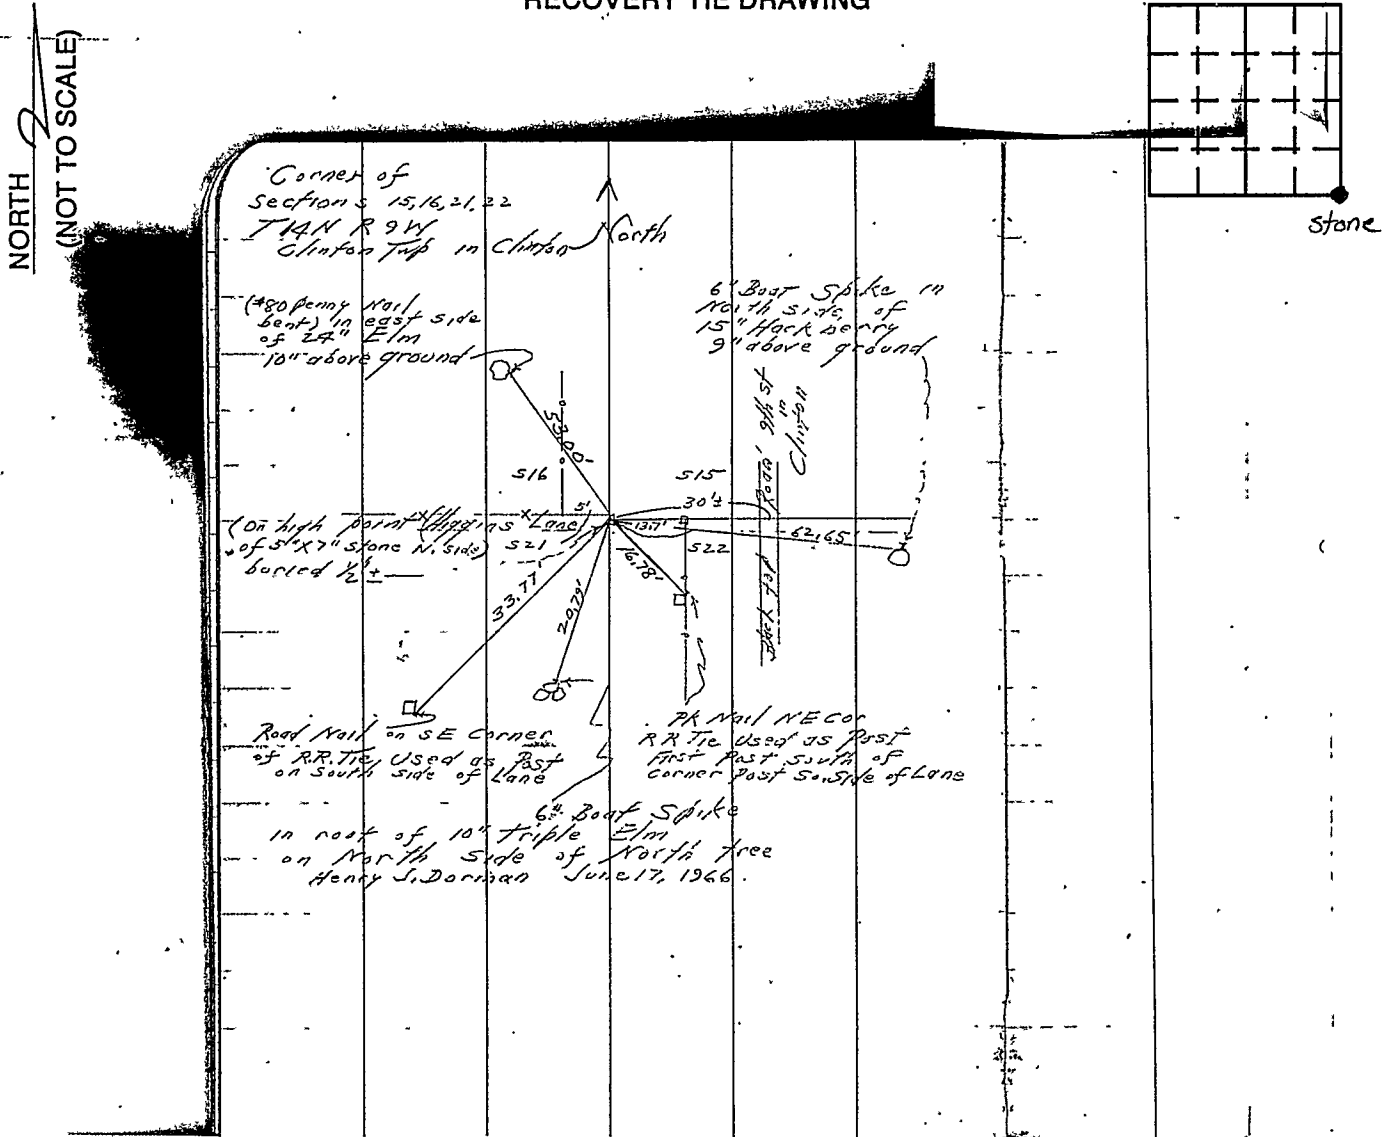 RECOVERY TIE DRAWING
NORTH
(NOT TO SCALE)
stone
Corner of
Sections 15,16,21,22
T14N R9W
Clinton Twp in Clinton
North
(#80 penny Nail
bent) in east side
of 24" Elm
10" above ground
6" Boat Spike in
North side of
15" Hackberry
9" above ground
53.00'
S16
S15
9th St
in
Clinton
30'±
5'
13.7'
62.65'
(On high point (Higgins Lane)
of 5"x7" stone N. side)
buried 1/2'±
S21
S22
16.78'
33.77'
20.79'
Black top
Road Nail on SE Corner
of R.R. Tie Used as Post
on South side of Lane
PK Nail NE Cor
RR Tie Used as Post
First Post south of
corner Post So. Side of Lane
6" Boat Spike
in root of 10" Triple Elm
on North Side of North tree
Henry J. Dorman June 17, 1966.